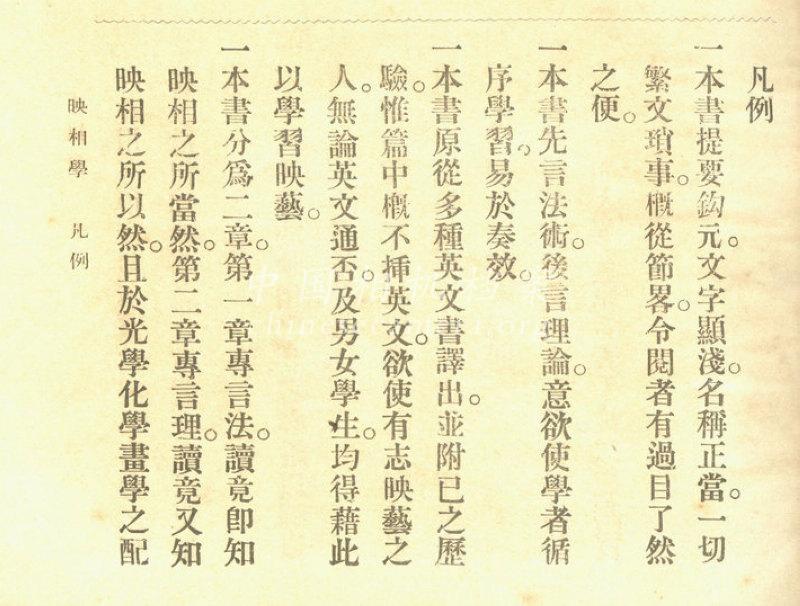 凡例
一本書提要鈎元。文字顯淺。名稱正當。一切
繁文瑣事。槪從節畧。令閱者有過目了然
之便。
一本書先言法術。後言理論。意欲使學者循
序學習。易於奏效。
一本書原從多種英文書譯出。並附已之歷
驗。惟篇中槪不揷英文。欲使有志映藝之
人。無論英文通否。及男女學生。均得藉此
以學習映藝。
一本書分爲二章。第一章專言法。讀竟卽知
映相之所當然。第二章專言理。讀竟又知
映相之所以然。且於光學化學畫學之配
映相學 凡例